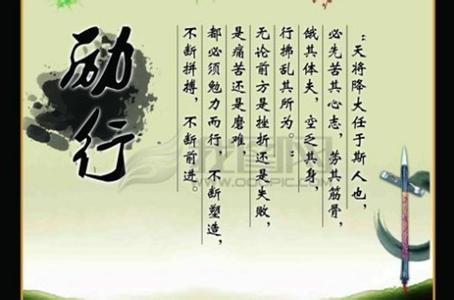 励行
：天将降大任于斯人也，
必先苦其心志，劳其筋骨，
饿其体夫，空乏其身，
行拂乱其所为。：
无论前方是挫折还是失败，
是痛苦还是磨难
都必须勉力而行，不断塑造，
不断拼搏，不断前进。